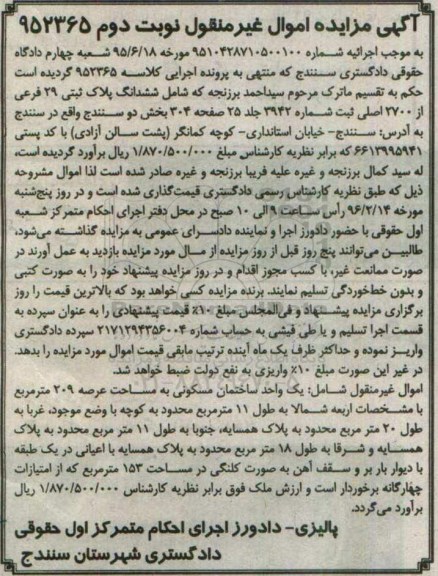 آگهی مزایده اموال غیرمنقول نوبت دوم ۹۵۲۳۶۵
به موجب اجرائیه شماره ۹۵۱۰۴۲۸۷۱۰۵۰۰۱۰۰ مورخه ۹۵/۶/۱۸ شعبه چهارم دادگاه
حقوقی دادگستری سنندج که منتهی به پرونده اجرایی کلاسه ۹۵۲۳۶۵ گردیده است
حکم به تقسیم ماترک مرحوم سیداحمد برزنجه که شامل ششدانگ پلاک ثبتی ۲۹ فرعی
از ۲۷۰۰ اصلی ثبت شماره ۳۹۴۲ جلد ۲۵ صفحه ۳۰۴ بخش دو سنندج واقع در سنندج
به آدرس: سنندج- خیابان استانداری- کوچه کمانگر (پشت سالن آزادی) با کد پستی
۶۶۱۳۹۹۵۹۴۱ که برابر نظریه کارشناس مبلغ ۱/۸۷۰/۵۰۰/۰۰۰ ریال برآورد گردیده است،
له سید کمال برزنجه و غیره علیه فریبا برزنجه و غیره صادر شده است لذا اموال مشروحه
ذیل که طبق نظریه کارشناس رسمی دادگستری قیمت‌گذاری شده است و در روز پنج‌شنبه
مورخه ۹۶/۲/۱۴ رأس ساعت ۹ الی ۱۰ صبح در محل دفتر اجرای احکام متمرکز شعبه
اول حقوقی با حضور دادورز اجرا و نماینده دادسرای عمومی به مزایده گذاشته می‌شود،
طالبین می‌توانند پنج روز قبل از روز مزایده از مال مورد مزایده بازدید به عمل آورند در
صورت ممانعت غیر، با کسب مجوز اقدام و در روز مزایده پیشنهاد خود را به صورت کتبی
و بدون خط‌خوردگی تسلیم نمایند. برنده مزایده کسی خواهد بود که بالاترین قیمت را روز
برگزاری مزایده پیشنهاد و فی‌المجلس مبلغ ۱۰٪ قیمت پیشنهادی را به عنوان سپرده به
قسمت اجرا تسلیم و یا طی فیشی به حساب شماره ۲۱۷۱۲۹۴۳۵۶۰۰۴ سپرده دادگستری
واریز نموده و حداکثر ظرف یک ماه آینده ترتیب مابقی قیمت اموال مورد مزایده را بدهد.
در غیر این صورت مبلغ ۱۰٪ واریزی به نفع دولت ضبط خواهد شد.
اموال غیرمنقول شامل: یک واحد ساختمان مسکونی به مساحت عرصه ۲۰۹ مترمربع
با مشخصات اربعه شمالا به طول ۱۱ مترمربع محدود به کوچه با وضع موجود، غربا به
طول ۲۰ متر مربع محدود به پلاک همسایه، جنوبا به طول ۱۱ متر مربع محدود به پلاک
همسایه و شرقا به طول ۱۸ متر مربع محدود به پلاک همسایه با اعیانی در یک طبقه
با دیوار بار بر و سقف آهن به صورت کلنگی در مساحت ۱۵۳ مترمربع که از امتیازات
چهارگانه برخوردار است و ارزش ملک فوق برابر نظریه کارشناس ۱/۸۷۰/۵۰۰/۰۰۰ ریال
برآورد می‌گردد.
پالیزی- دادورز اجرای احکام متمرکز اول حقوقی
دادگستری شهرستان سنندج